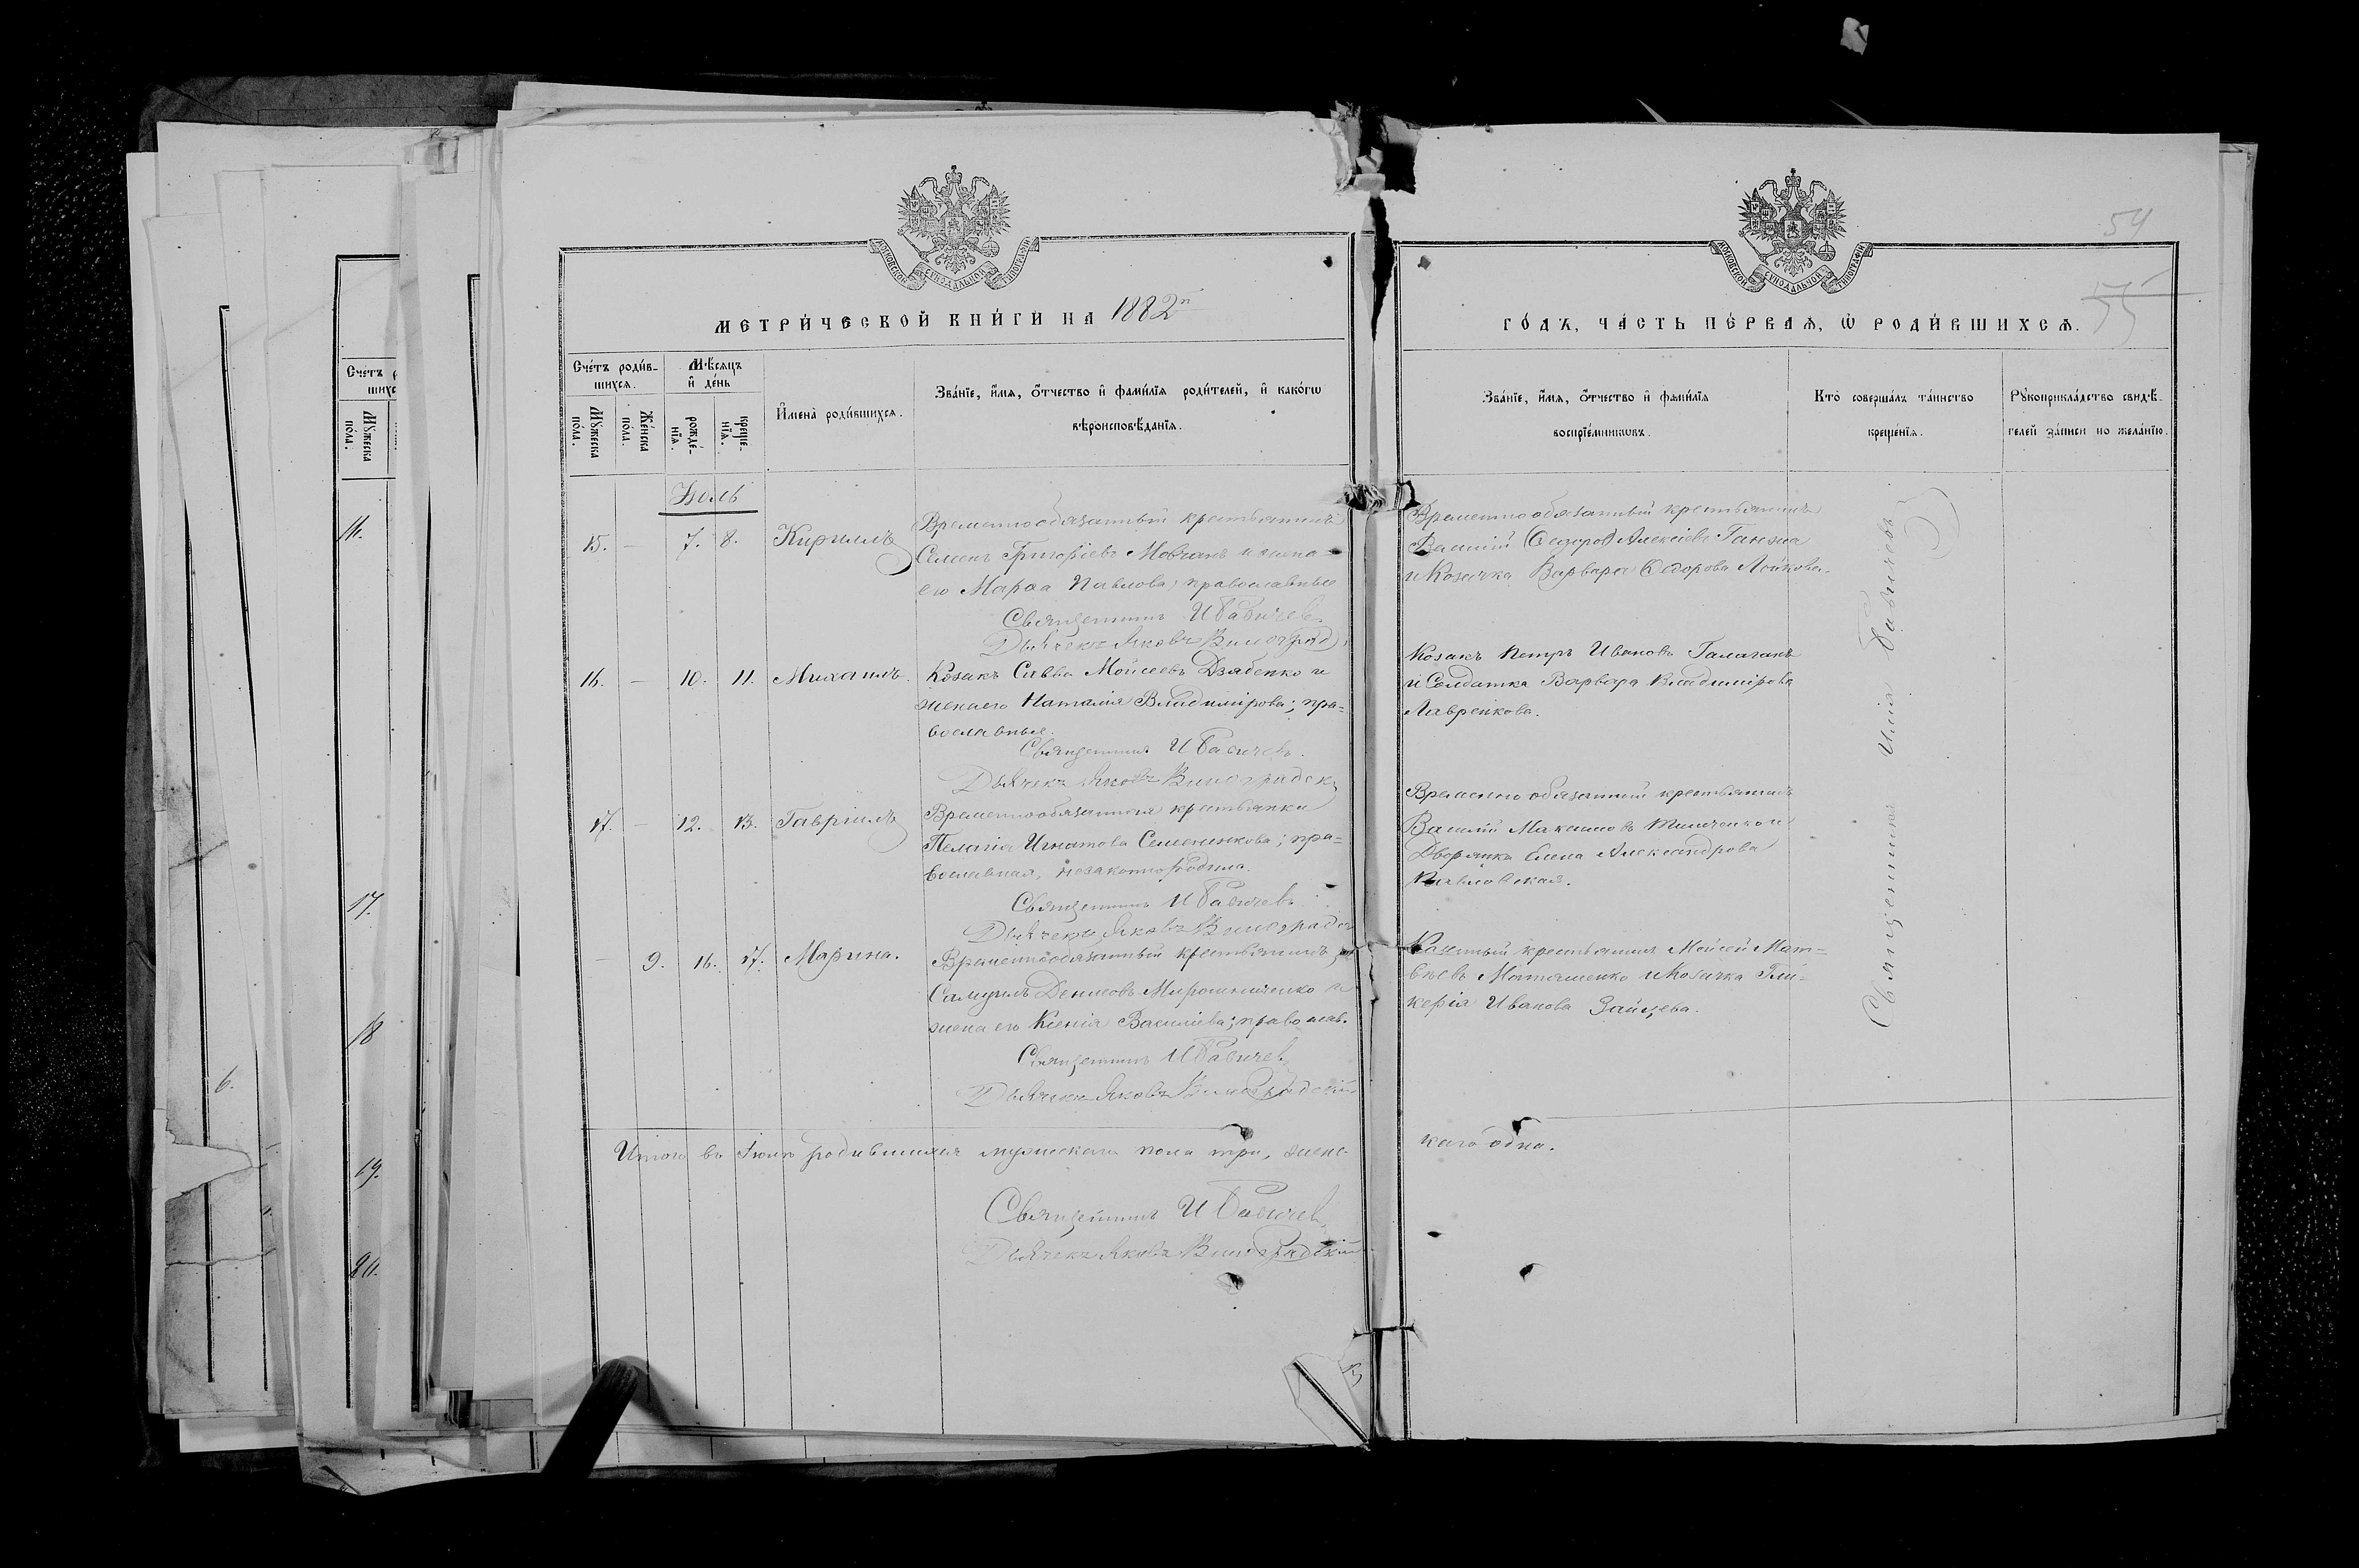 МОСКОВСКОЙ СѴНОДАЛЬНОЙ ТИПОГРАФІИ
МЕТРИ́ЧЕСКОЙ КНИ́ГИ НА 1882й
Сче́тъ роди́в-
шихся.
Мѣ́сяцъ
и҆ де́нь
И҆мена̀ роди́вшихся.
Зва́нїе, и҆́мя, ѻ҆́тчество и҆ фами́лїя роди́телей, и҆ како́гѡ
вѣроисповѣ́данїя.
Мꙋ́жеска
по́ла.
Же́нска
по́ла.
рожде́-
нїя.
креще́-
нїя.
Іюль
15. — 7. 8. Кириллъ
Временнообязанный крестьянинъ
Семенъ Григоріевъ Мовчанъ и жена
его Марѳа Павлова; православные
Священникъ И Бабичевъ
Дьячекъ Яковъ Виноград
16. — 10. 11. Михаилъ.
Козакъ Савва Моѵсеевъ Дзабенко и
жена его Наталія Владимірова; пра=
вославные.
Священникъ И Бабичевъ.
Дьячекъ Яковъ Виноградск
17. — 12. 13. Гавріилъ
Временнообязанная крестьянка
Пелагія Игнатова Семененкова; пра=
вославная, незаконнородила.
Священникъ И Бабичевъ
Дьячекъ Яковъ Виноградс
— 9. 16. 17. Марина.
Временнообязанный крестьянинъ
Самуилъ Денисовъ Мирошниченко и
жена его Ксенія Василіева; православ.
Священникъ И Бабичевъ
Дьячекъ Яковъ Виноградскій
Итого въ Іюлѣ родившихся мужескаго пола три, женс-
Священникъ И Бабичевъ
Дьячекъ Яковъ Виноградскій
54
55
МОСКОВСКОЙ СѴНОДАЛЬНОЙ ТИПОГРАФІИ
ГО́ДЪ, ЧА́СТЬ ПЕ́РВАѦ, Ѡ҆ РОДИ́ВШИХСѦ.
Зва́нїе, и҆́мя, ѻ҆́тчество и҆ фами́лїя
воспрїе́мникѡвъ.
Кто̀ соверша́лъ та́инство
креще́нїя.
Рꙋкоприкла́дство свидѣ́-
телей за́писи по жела́нїю.
Временнообязанный крестьянинъ
Василій (Ѳедоров) Алексіевъ Ганжа
и Козачка Варвара Ѳедорова Лойкова.
Козакъ Петръ Ивановъ Галаганъ
и Солдатка Варвара Владимірова
Лавренкова.
Временно обязанный крестьянинъ
Василій Максимовъ и
Дворянка Елена Александрова
Павловская.
крестьянинъ Моѵсей Мат=
вѣевъ Маташенко и Козачка Гли-
керія Иванова Зайцева.
Священникъ Илія Бабичевъ
каго одна.
11.
17.
18
19.
20.
6.